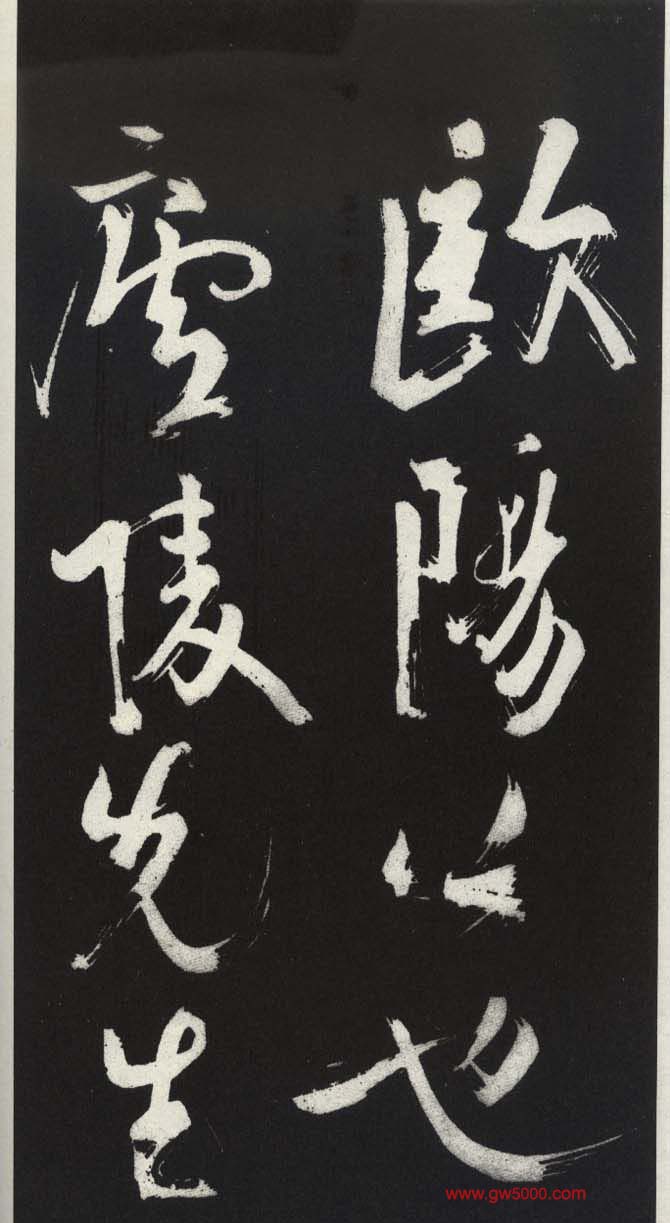 歐陽公也
廬陵先生
www.gw5000.com